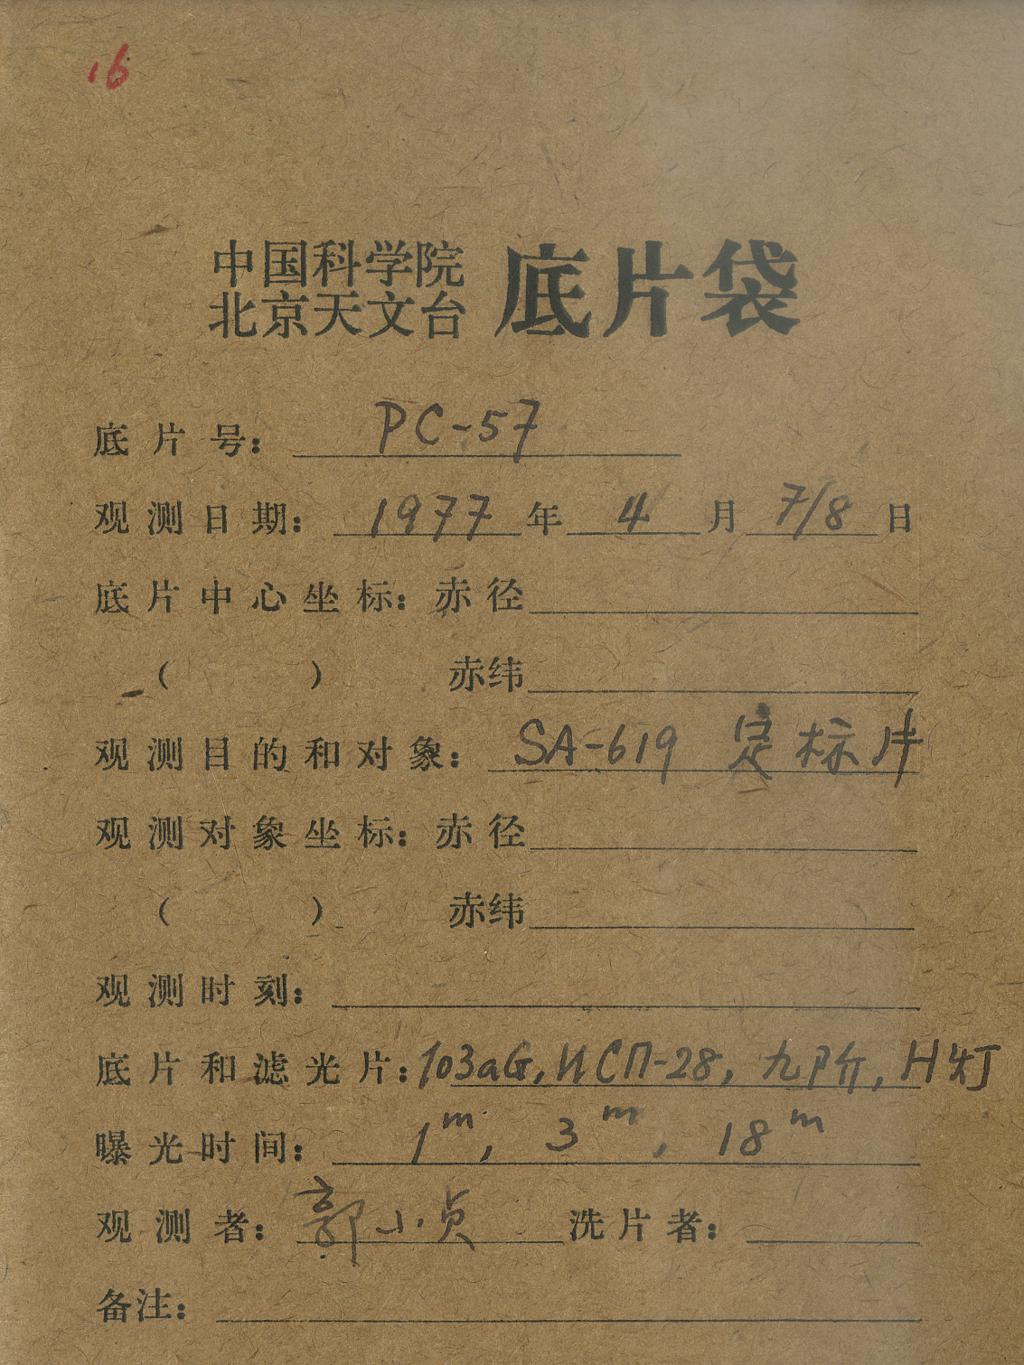 16
中国科学院
北京天文台 底片袋
底片号: PC-57
观测日期: 1977年 4月 7/8日
底片中心坐标: 赤径
( ) 赤纬
观测目的和对象: SA-619 定标片
观测对象坐标: 赤径
( ) 赤纬
观测时刻:
底片和滤光片: 103aG, ИСП-28, 九阶, H灯
曝光时间: 1ᵐ, 3ᵐ, 18ᵐ
观测者: 郭小贞 洗片者:
备注: